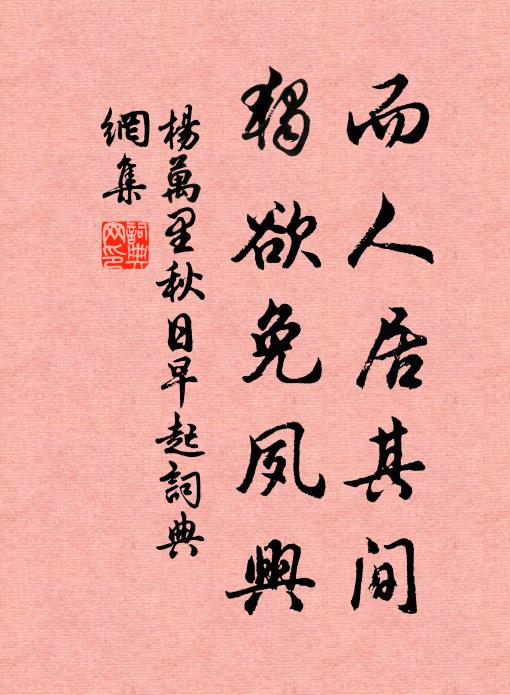 而人居其间
獨欲免夙興
楊萬里秋日早起詞典
網集
詞典
网印